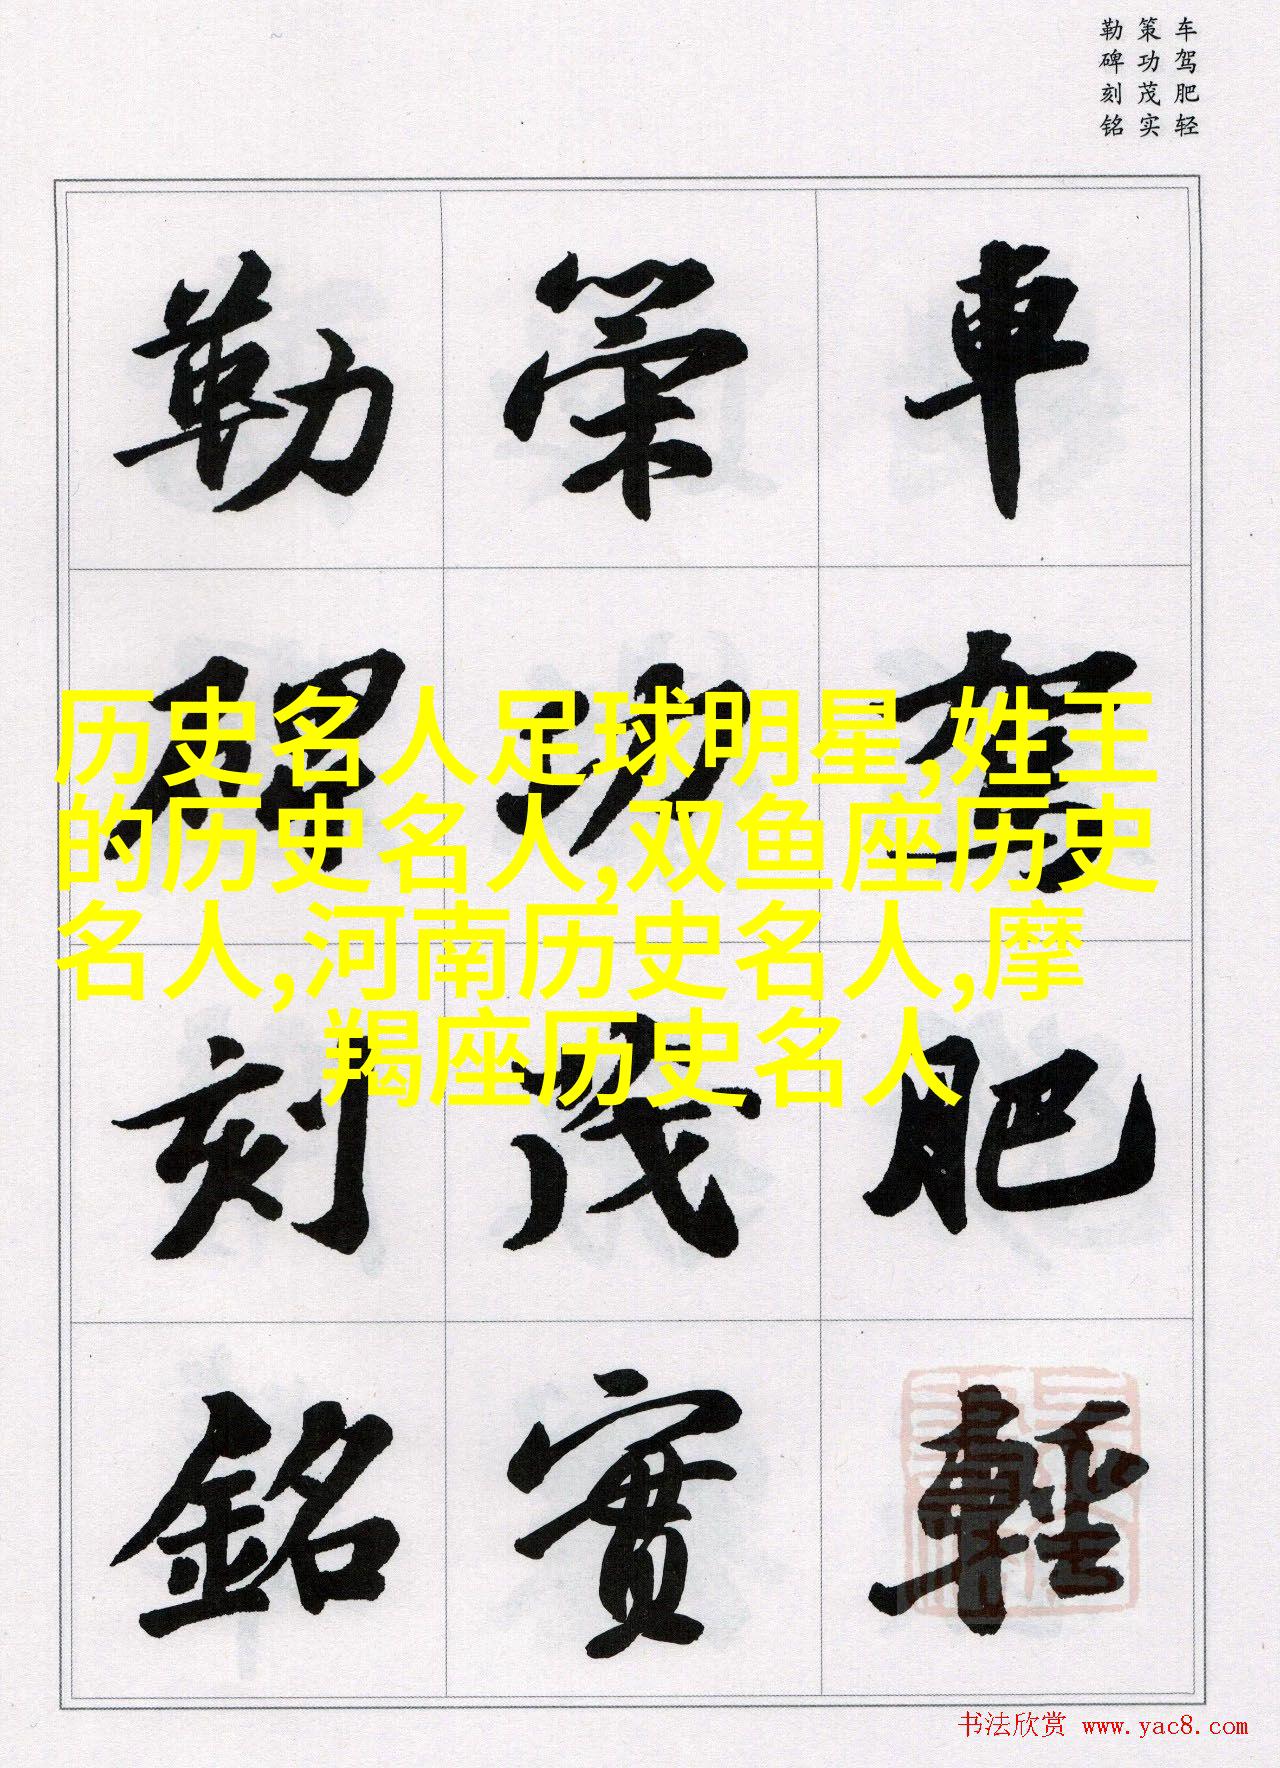 车驾肥轻
策功茂实
勒碑刻铭
車駕肥輕
策功茂實
勒碑刻銘
历史名人足球明星,姓王
的历史名人,双鱼座历史
名人,河南历史名人,摩
羯座历史名人
书法欣赏 www.yac8.com